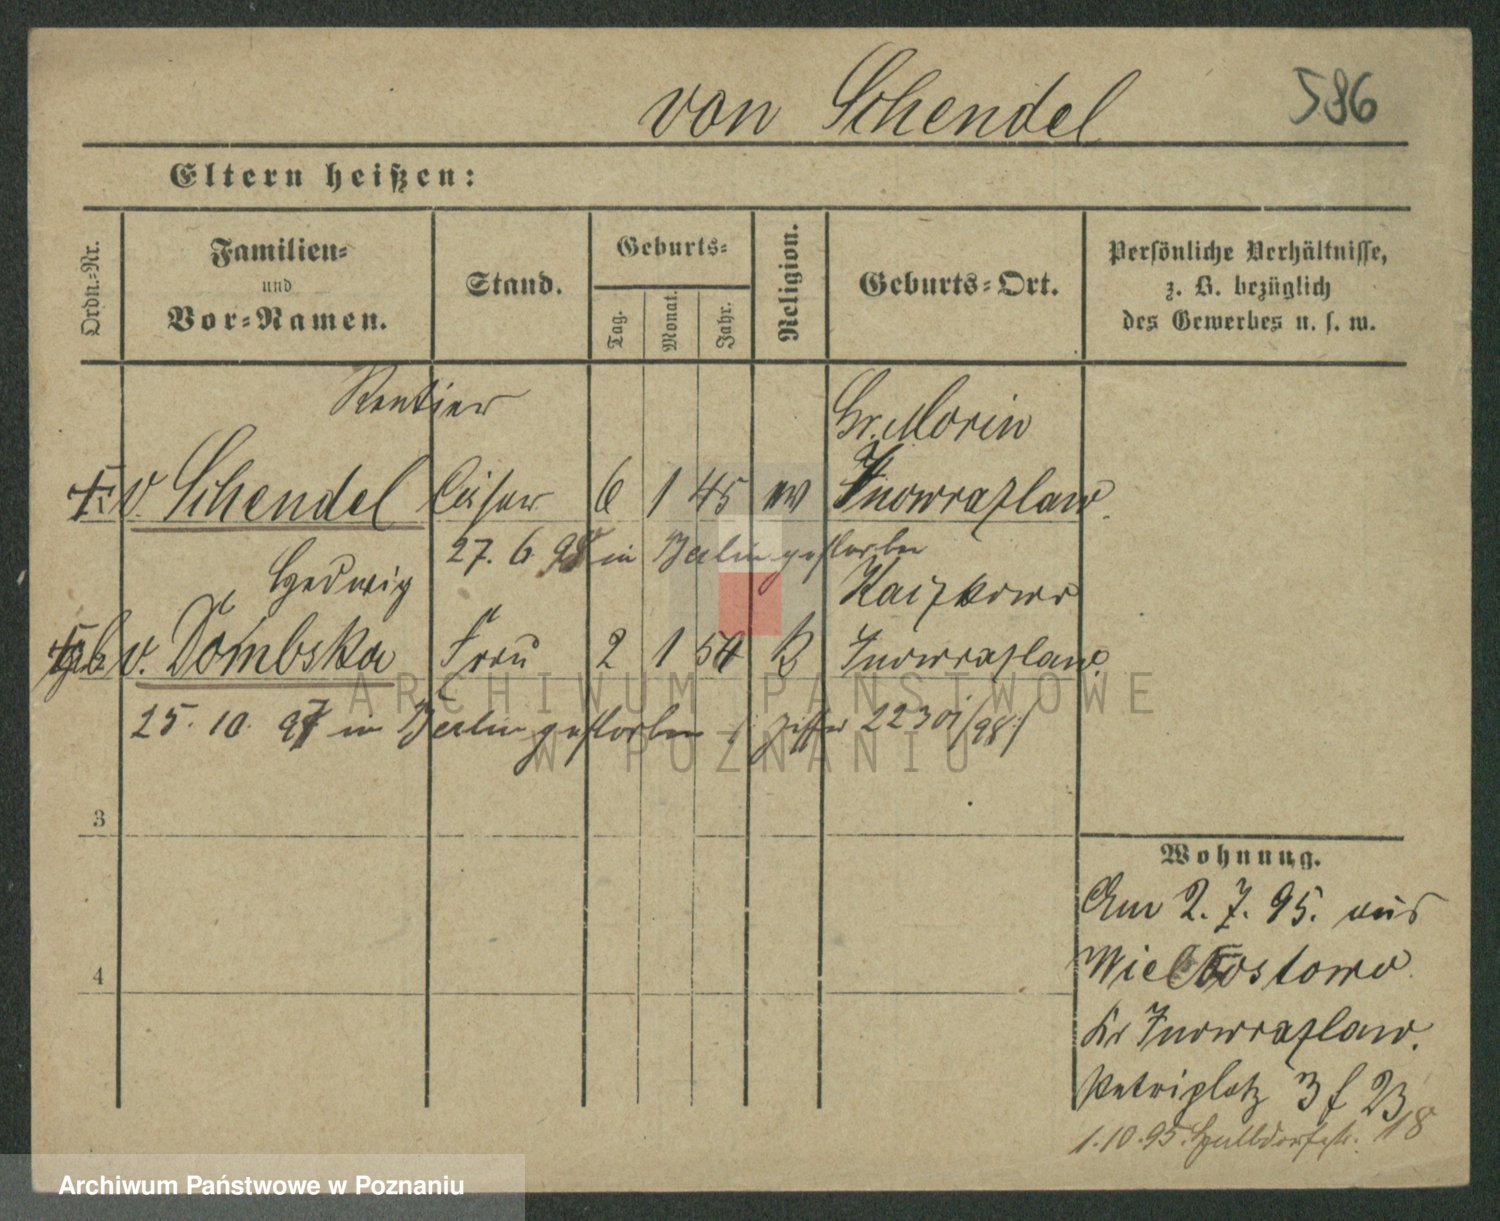 von Schendel 586
Eltern heißen:
Ordn.=Nr.
Familien=
und
Vor=Namen.
Stand.
Geburts=
Tag.
Monat.
Jahr.
Religion.
Geburts=Ort.
Persönliche Verhältnisse,
z. B. bezüglich
des Gewerbes u. s. w.
Rentier Gr. Morin
v. Schendel Cäsar 6 1 45 ev Inowrazlaw.
27. 6. 98 in Berlin gestorben
Hedwig Kaczkowo
geb v. Dombska Frau 2 1 54 K Inowrazlaw.
25. 10. 97 in Berlin gestorben
2230/98
3
4
Wohnung.
Am 2. 7. 95. aus
Kr Inowrazlaw.
Petriplatz 3 f 23
1.10.95. 18
ARCHIWUM PAŃSTWOWE
W POZNANIU
Archiwum Państwowe w Poznaniu